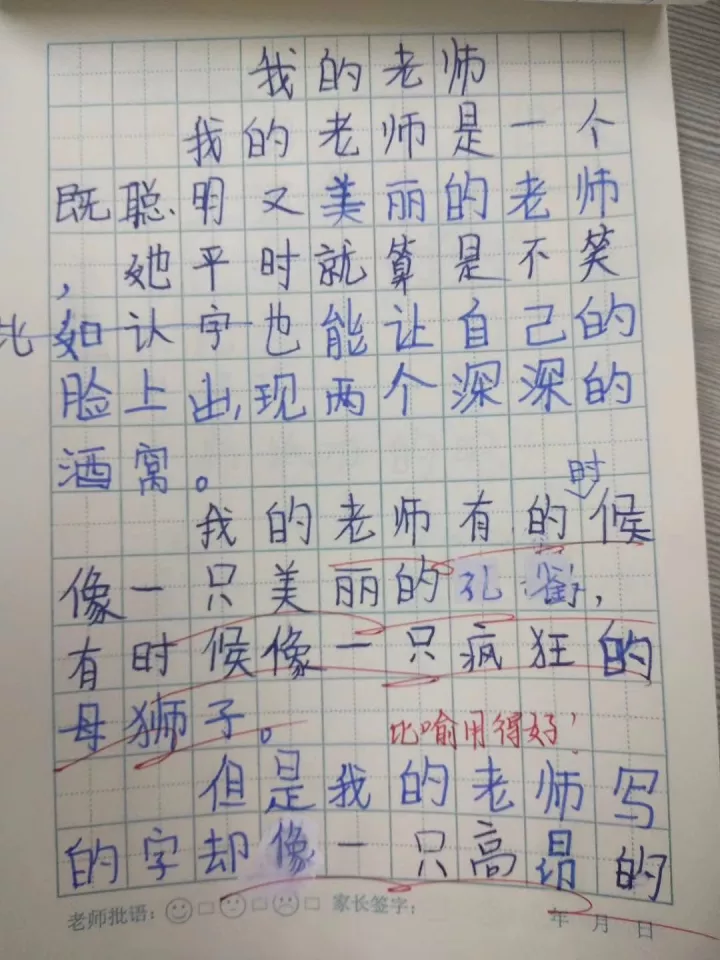 我的老师
我的老师是一个
既聪明又美丽的老师
，她平时就算是不笑
比如认字也能让自己的
脸上出现两个深深的
酒窝。
时
我的老师有的候
像一只美丽的孔雀，
有时候像一只疯狂的
母狮子。
比喻用得好！
但是我的老师写
的字却像一只高昂的
老师批语： 家长签字： 年 月 日